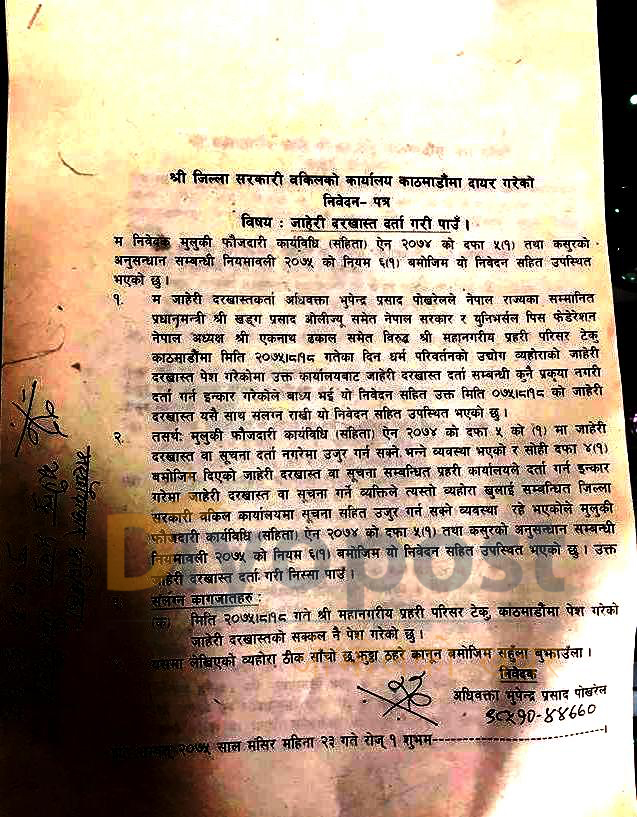 श्री जिल्ला सरकारी वकिलको कार्यालय काठमाडौंमा दायर गरेको
निवेदन- पत्र
विषय : जाहेरी दरखास्त दर्ता गरी पाउँ ।
म निवेदक मुलुकी फौजदारी कार्यविधि (संहिता) ऐन २०७४ को दफा ५(१) तथा कसुरको
अनुसन्धान सम्बन्धी नियमावली २०७५ को नियम ६(१) बमोजिम यो निवेदन सहित उपस्थित
भएको छु ।
१. म जाहेरी दरखास्तकर्ता अधिवक्ता भुपेन्द्र प्रसाद पोखरेलले नेपाल राज्यका सम्मानित
प्रधानमन्त्री श्री खड्ग प्रसाद ओलीज्यू समेत नेपाल सरकार र युनिभर्सल पिस फेडेरेशन
नेपाल अध्यक्ष श्री एकनाथ ढकाल समेत विरुद्ध श्री महानगरीय प्रहरी परिसर टेकु
काठमाडौंमा मिति २०७५।८।१८ गतेका दिन धर्म परिवर्तनको उद्योग व्यहोराको जाहेरी
दरखास्त पेश गरेकोमा उक्त कार्यालयबाट जाहेरी दरखास्त दर्ता सम्बन्धी कुनै प्रकृया नगरी
दर्ता गर्न इन्कार गरेकोले बाध्य भई यो निवेदन सहित उक्त मिति ०७५।८।१८ को जाहेरी
दरखास्त यसै साथ संलग्न राखी यो निवेदन सहित उपस्थित भएको छु ।
२. तसर्थ मुलुकी फौजदारी कार्यविधि (संहिता) ऐन २०७४ को दफा ५ को (१) मा जाहेरी
दरखास्त वा सूचना दर्ता नगरेमा उजुर गर्न सक्ने भन्ने व्यवस्था भएको र सोही दफा ४(१)
बमोजिम दिएको जाहेरी दरखास्त वा सूचना सम्बन्धित प्रहरी कार्यालयले दर्ता गर्न इन्कार
गरेमा जाहेरी दरखास्त वा सूचना गर्ने व्यक्तिले त्यस्तो व्यहोरा खुलाई सम्बन्धित जिल्ला
सरकारी वकिल कार्यालयमा सूचना सहित उजुर गर्न सक्ने व्यवस्था रहे भएकोले मुलुकी
फौजदारी कार्यविधि (संहिता) ऐन २०७४ को दफा ५(१) तथा कसुरको अनुसन्धान सम्बन्धी
नियमावली २०७५ को नियम ६(१) बमोजिम यो निवेदन सहित उपस्थित भएको छु । उक्त
जाहेरी दरखास्त दर्ता गरी निस्सा पाउँ ।
संलग्न कागजातहरु :
(क) मिति २०७५।८।१८ गते श्री महानगरीय प्रहरी परिसर टेकु, काठमाडौंमा पेश गरेको
जाहेरी दरखास्तको सक्कल नै पेश गरेको छु ।
यसमा लेखिएको व्यहोरा ठीक साँचो छ झुठ्ठा ठहरे कानून बमोजिम सहुँला बुझाउँला ।
निवेदक
अधिवक्ता भुपेन्द्र प्रसाद पोखरेल
९८५१०-४४६६०
२०७५ साल मंसिर महिना २३ गते रोज १ शुभम
post